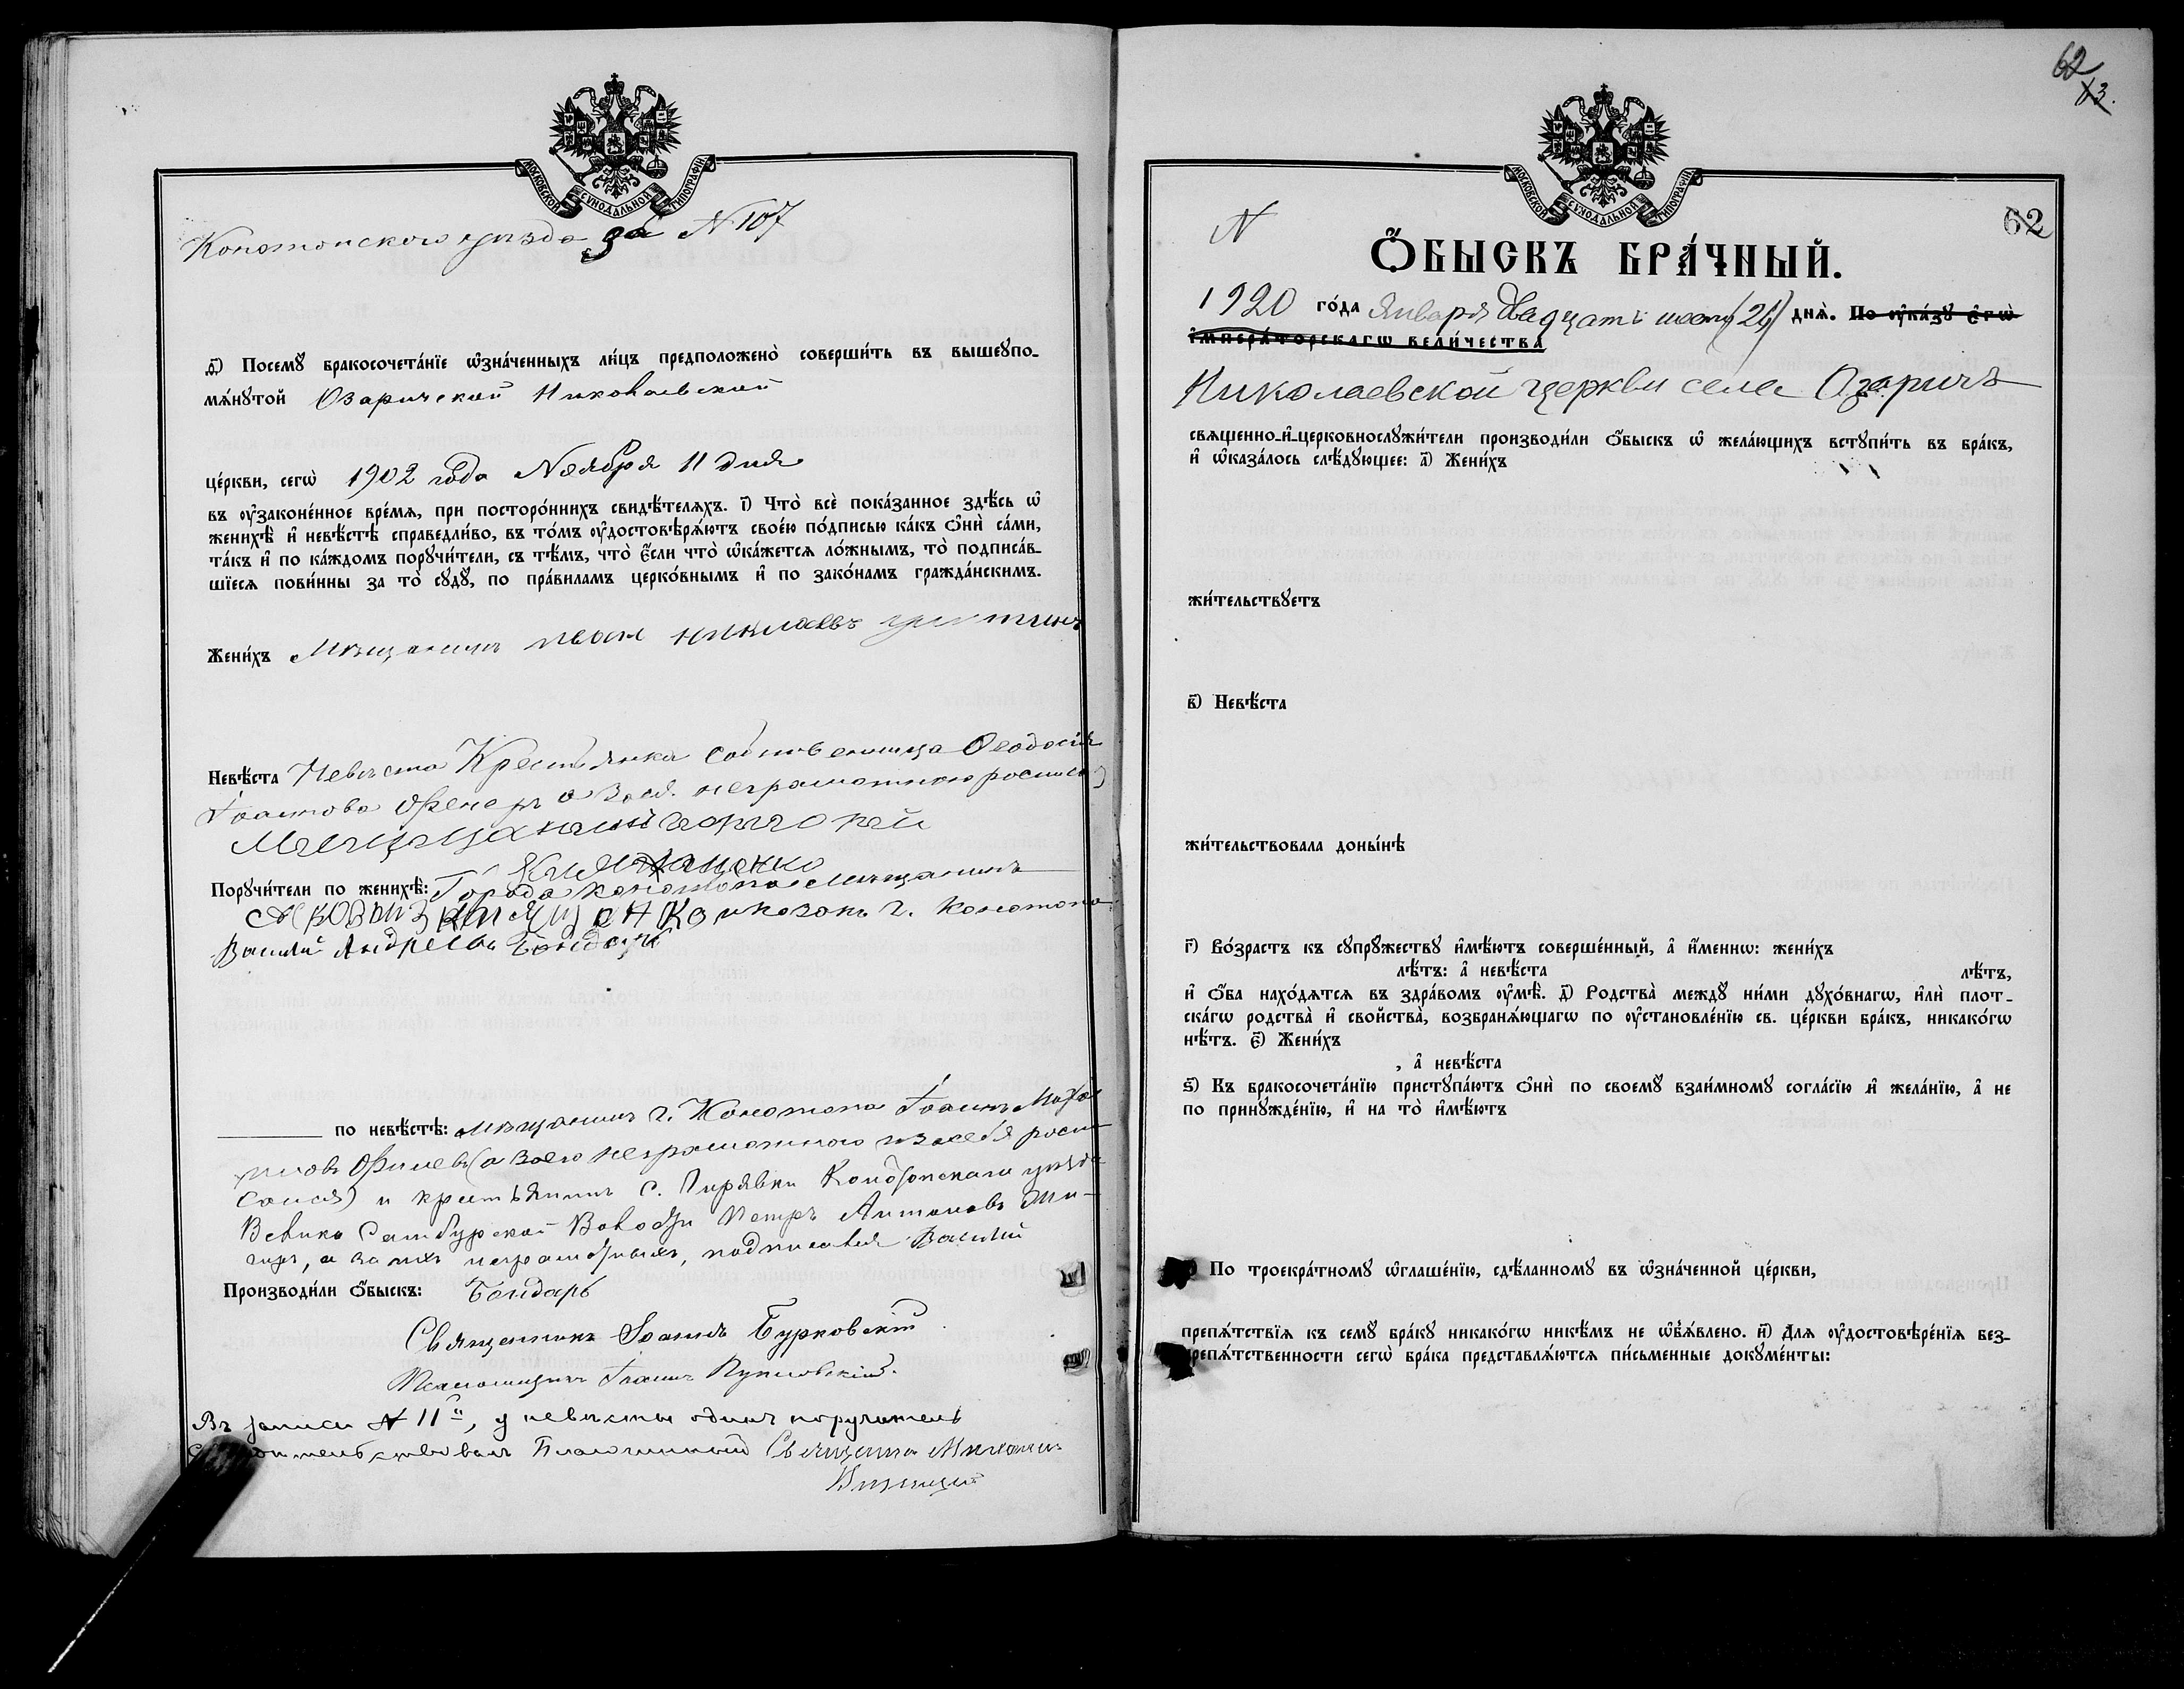 МОСКОВСКОЙ СѴНОДАЛЬНОЙ ТИПОГРАФІИ
Конотопского уѣзда за № 107
д҃і) Посемꙋ бракосочета́нїе ѡ҆зна́ченныхъ ли́цъ предположено̀ соверши́ть въ вышеꙋпо-
мѧ́нꙋтой Озаричской Николаевской
це́ркви, сегѡ̀ 1902 года Ноября 11 дня
въ ᲂу҆законе́нное вре́мѧ, при посторо́ннихъ свидѣ́телѧхъ. і҃) Что̀ всѐ пока́занное здѣ́сь ѡ҆
женихѣ̀ и҆ невѣ́стѣ справедли́во, въ то́мъ ᲂу҆достовѣрѧ́ютъ свое́ю по́дписью ка́къ ѻ҆нѝ са́ми,
та́къ и҆ по ка́ждомъ порꙋчи́тели, съ тѣ́мъ, что̀ є҆́сли что̀ ѡ҆ка́жется ло́жнымъ, то̀ подписа́в-
шїесѧ пови́нны за то̀ сꙋдꙋ̀, по пра́виламъ церко́внымъ и҆ по зако́намъ гражда́нскимъ.
Жени́хъ Мѣщанинъ иван николаевъ
Невѣ́ста Невѣста Крестьянка Ѳеодосія
Іоаннова а за неграмотною
Порꙋчи́тели по женихѣ̀: Города Конотопа Мѣщанинъ
и козакъ г. Конотопа
Василій Андреевъ Бондарь
по невѣ́стѣ: Мѣщанинъ г. Конотопа Іоаннъ
неграмотного
и крестьянинъ с. Пирявки Конотопскаго уѣзда
Велико Самбурской Волости Петръ Антоновъ
а за нихъ неграмотныхъ, подписался Василій
Производи́ли ѻ҆́быскъ: Бондарь
Священникъ Іоаннъ Бурковскій
Псаломщикъ Іоаннъ
Въ записи № 11й, у невѣсты одинъ поручитель
Благочинный Священникъ Михаилъ
62
63.
МОСКОВСКОЙ СѴНОДАЛЬНОЙ ТИПОГРАФІИ
N
62
Ѻ҆́БЫСКЪ БРА́ЧНЫЙ.
1920 го́да Января двадцать шест (26) днѧ̀. По ᲂу҆ка́зꙋ є҆гѡ̀
і҆мпера́торскагѡ вели́чества
Николаевской церкви села Озаричъ
свѧщенно-и҆-церковнослꙋжи́тели производи́ли ѻ҆́быскъ ѡ҆ жела́ющихъ встꙋпи́ть въ бра́къ,
и҆ ѡ҆каза́лось слѣ́дꙋющее: а҃) Жени́хъ
жи́тельствꙋетъ
в҃) Невѣ́ста
жи́тельствовала доны́нѣ
г҃) Во́зрастъ къ сꙋпрꙋ́жествꙋ и҆мѣ́ютъ соверше́нный, а҆ и҆́менно: жени́хъ
лѣ́тъ: а҆ невѣ́ста лѣ́тъ,
и҆ ѻ҆́ба нахо́дѧтсѧ въ здра́вомъ ᲂу҆мѣ̀. д҃) Родства̀ междꙋ̀ ни́ми дꙋхо́внагѡ, и҆лѝ плот-
ска́гѡ родства̀ и҆ сво́йства̀, возбранѧ́ющагѡ по ᲂу҆становле́нїю св. це́ркви бра́къ, никако́гѡ
нѣ́тъ. є҃) Жени́хъ
, а҆ невѣ́ста
ѕ҃) Къ бракосочета́нїю пристꙋпа́ютъ ѻ҆нѝ по своемꙋ̀ взаи́мномꙋ согла́сїю и҆ жела́нїю, а҆ не
по принꙋжде́нїю, и҆ на то̀ и҆мѣ́ютъ
По троекра́тномꙋ ѡ҆глаше́нїю, сдѣ́ланномꙋ въ ѡ҆зна́ченной це́ркви,
препѧ́тствїѧ къ семꙋ̀ бра́кꙋ никако́гѡ никѣ́мъ не ѡ҆б̾ѧ́влено. и҃) Длѧ̀ ᲂу҆достовѣре́нїѧ без-
препѧ́тственности сегѡ̀ бра́ка представлѧ́ютсѧ пи́сьменные докꙋме́нты: